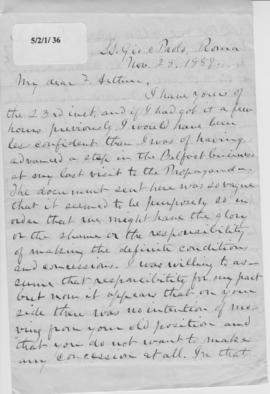 5/2/1/36
SS. Gio e Paolo, Roma
Nov. 28. 1889.
My dear F. Arthur,
I have yours of
the 23rd inst. and if I had got it a few
hours previously I would have been
less confident than I was of having
advanced a step in the Belfast business
at my last visit to the Propaganda.
The document sent here was so vague
that it seemed to be purposely so in
order that we might have the glory
or the shame or the responsibility
of making the definite conditions
and concessions. I was willing to as-
sume that responsibility for my part
but now it appears that on your
side there was no intention of mo-
ving from your old position and
that you do not want to make
any concession at all. In that